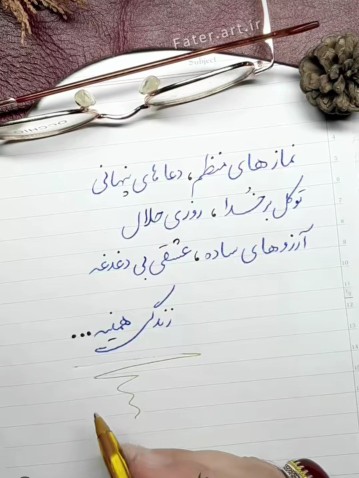 Fater.art.ir
Subject
نمازهای منظم، دعاهای پنهانی
توکل بر خُدا، روزی حلال
آرزوهای ساده، عشقی بی دغدغه
زندگی همینه...